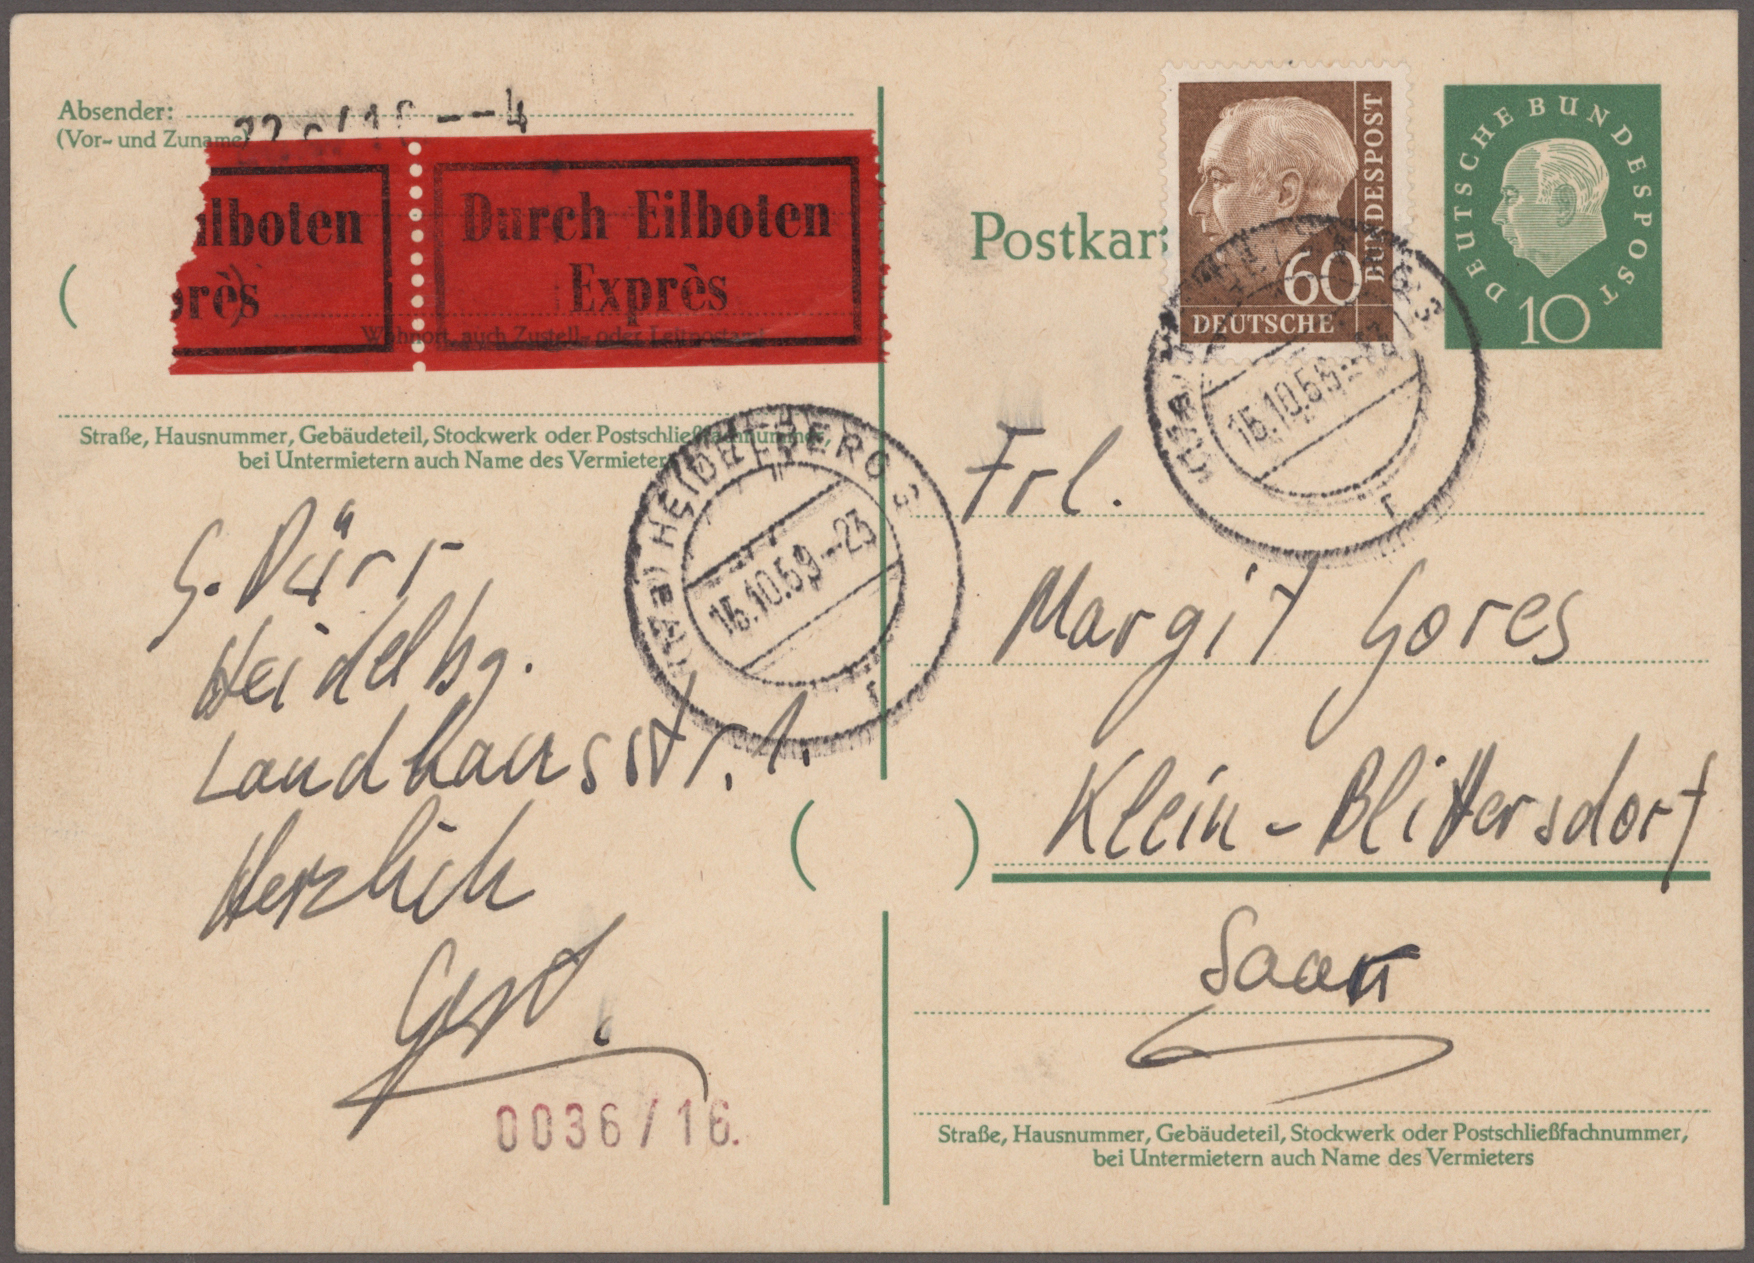 Absender:
(Vor- und Zuname)
--4
ilboten
près
Durch Eilboten
Exprès
Wohnort, auch Zustell- oder Leitpostamt
Straße, Hausnummer, Gebäudeteil, Stockwerk oder Postschließfachnummer,
bei Untermietern auch Name des Vermieters
G. Dürr
Heidelbg.
Landhausstr. 1.
Herzlich
Gert
0036/16.
HEIDELBERG 2
15.10.59--23
r
Postkar
BUNDESPOST
60
DEUTSCHE
DEUTSCHE BUNDESPOST
10
15.10.59
r
Frl.
Margit Gores
Klein-Blittersdorf
Saar
Straße, Hausnummer, Gebäudeteil, Stockwerk oder Postschließfachnummer,
bei Untermietern auch Name des Vermieters